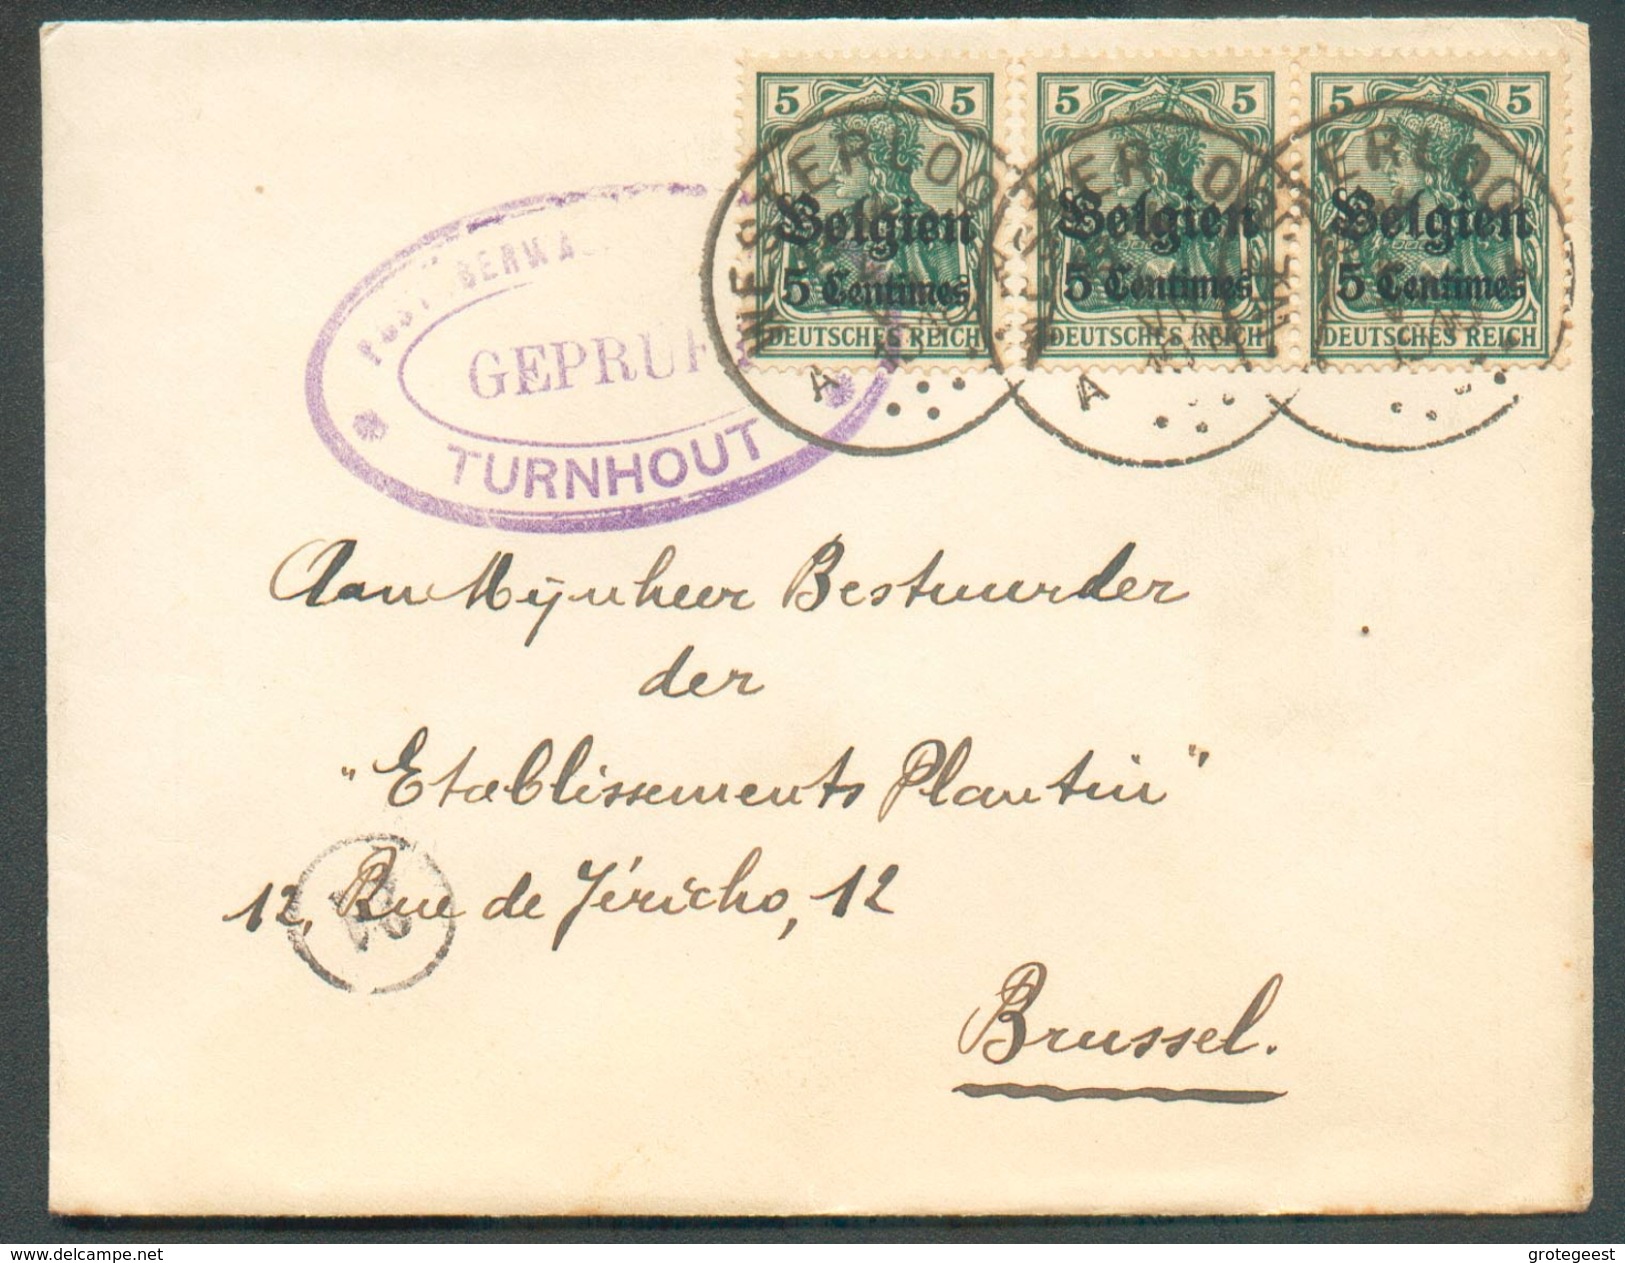 5 5 5 5 5 5
Belgien Belgien Belgien
5 Centimes 5 Centimes 5 Centimes
DEUTSCHES REICH DEUTSCHES REICH DEUTSCHES REICH
WESTERLOO
A A
GEPRÜF
TURNHOUT
Aan Mijnheer Bestuurder
der
"Etablissements Plantin"
12, Rue de Jéricho, 12
Brussel.
delcampe.net
grotegeest